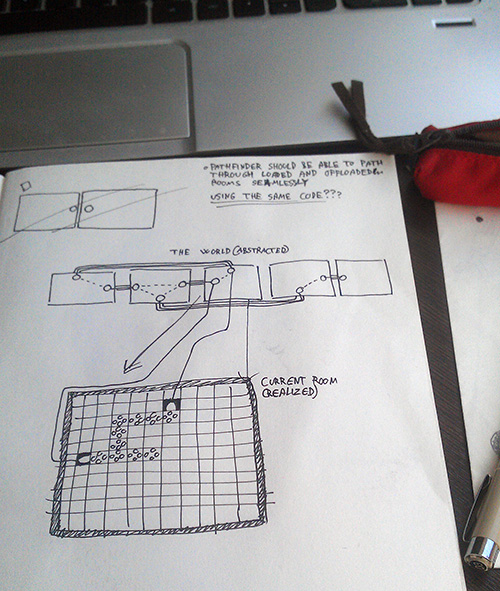 - PATHFINDER SHOULD BE ABLE TO PATH
THROUGH LOADED AND OFFLOADED
ROOMS SEAMLESSLY
USING THE SAME CODE???
THE WORLD (ABSTRACTED)
CURRENT ROOM
(REALIZED)